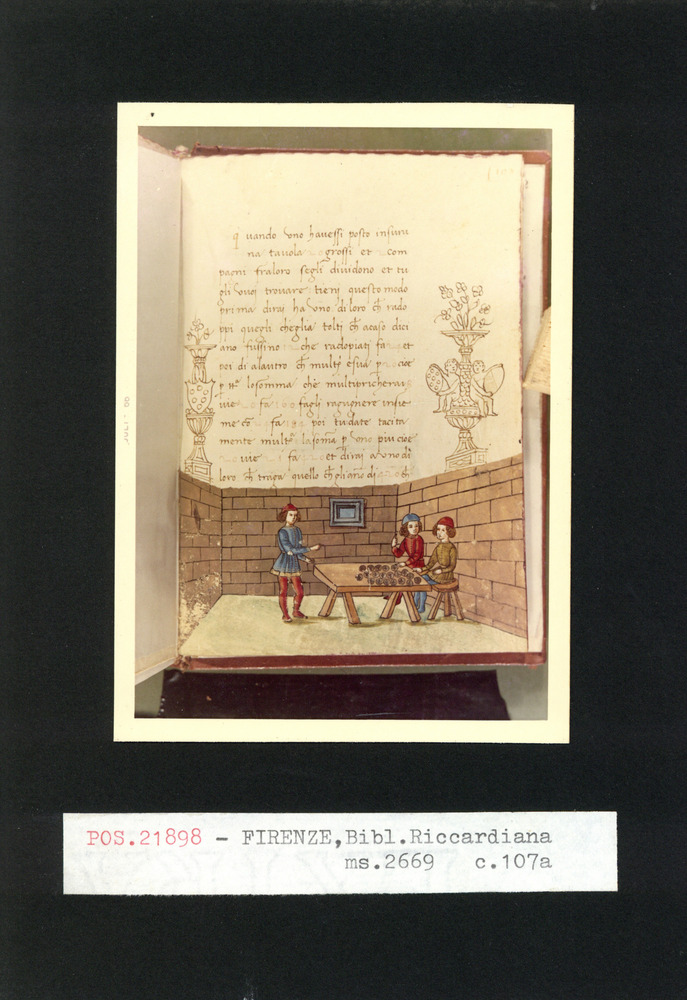 q uando uno havessi posto insuru
na tavola grossi et com
pagni fraloro segli dividono et tu
gli vuoi trovare tieni questo modo
prima dirai ha uno di loro ch rado
ppi quegli cheglia tolti ch acaso dici
ano fussino che radopiati fa et
poi di alautro ch multi esua p cioe
p losomma che multipricherai
vie fa fagli ragugnere insie
me co fa poi tu date tacita
mente multi lasoma p uno piu cioe
vie fa et dirai a uno di
loro ch traga quello ch gliano di ch
JULY 66
POS.21898 - FIRENZE,Bibl.Riccardiana
ms.2669 c.107a